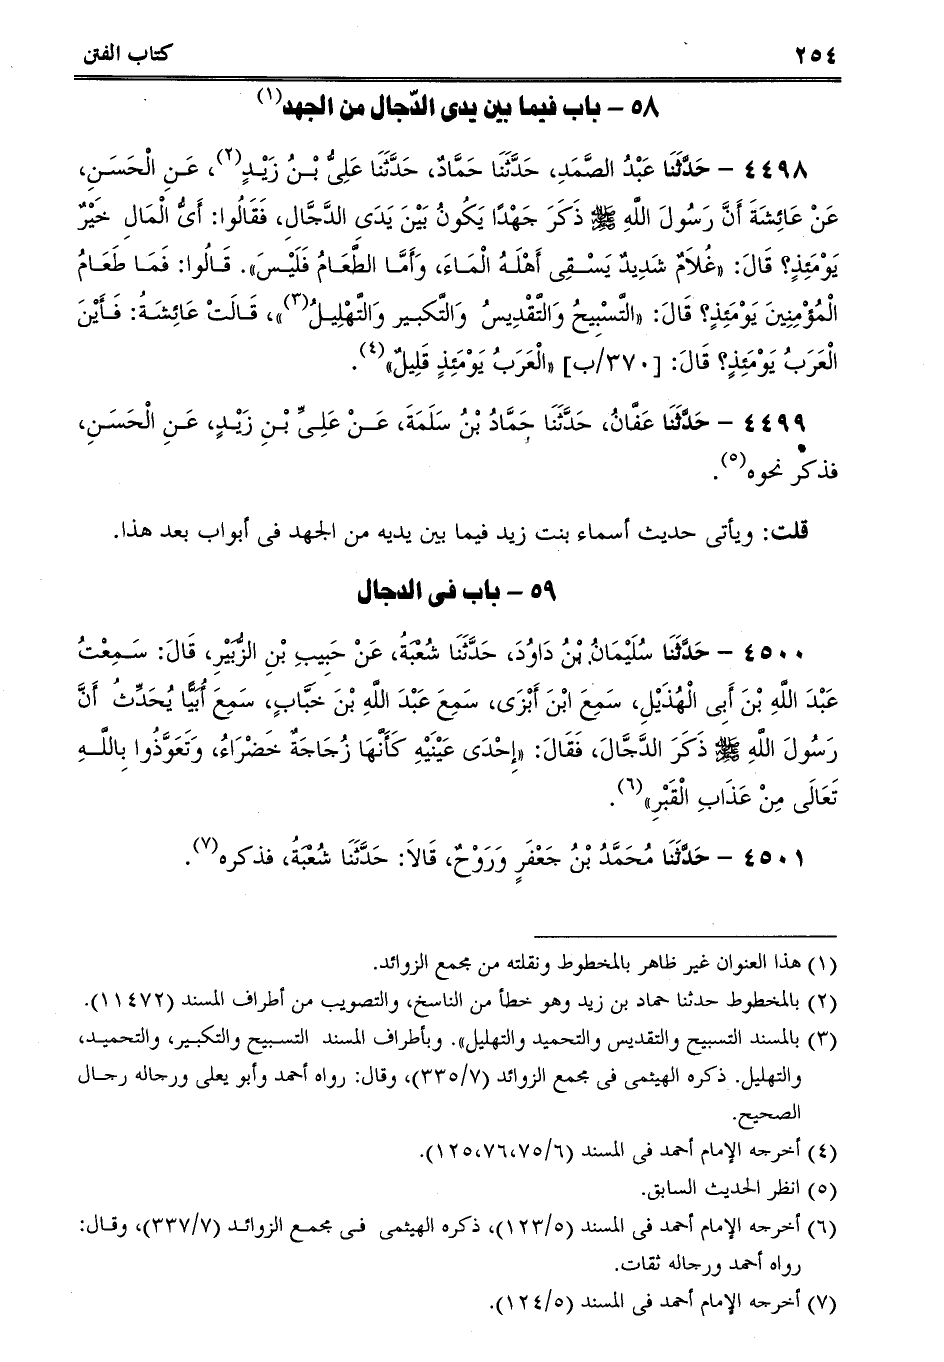 ٢٥٤ كتاب الفتن
٥٨ – باب فيما بين يدى الدّجال من الجهد(١)
٤٤٩٨ – حَدَّثَنَا عَبْدُ الصَّمَدِ، حَدَّثَنَا حَمَّادٌ، حَدَّثَنَا عَلِىُّ بْنُ زَيْدٍ(٢)، عَنِ الْحَسَنِ،
عَنْ عَائِشَةَ أَنَّ رَسُولَ اللَّهِ ﷺ ذَكَرَ جَهْدًا يَكُونُ بَيْنَ يَدَى الدَّجَّالِ، فَقَالُوا: أَىُّ الْمَالِ خَيْرٌ
يَوْمَئِذٍ؟ قَالَ: «غُلاَمٌ شَدِيدٌ يَسْقِى أَهْلَهُ الْمَاءَ، وَأَمَّا الطَّعَامُ فَلَيْسَ». قَالُوا: فَمَا طَعَامُ
الْمُؤْمِنِينَ يَوْمَئِذٍ؟ قَالَ: «التَّسْبِيحُ وَالتَّقْدِيسُ وَالتَّكبِير وَالتَّهْلِيلُ(٣)»، قَالَتْ عَائِشَةُ: فَأَيْنَ
الْعَرَبُ يَوْمَئِذٍ؟ قَالَ: [٣٧٠/ب] «الْعَرَبُ يَوْمَئِذٍ قَلِيلٌ»(٤).
٤٤٩٩ – حَدَّثَنَا عَفَّانُ، حَدَّثَنَا حَمَّادُ بْنُ سَلَمَةَ، عَنْ عَلِىِّ بْنِ زَيْدٍ، عَنِ الْحَسَنِ،
فذكر نحوه(٥).
قلت: ويأتى حديث أسماء بنت زيد فيما بين يديه من الجهد فى أبواب بعد هذا.
٥٩ – باب فى الدجال
٤٥٠٠ – حَدَّثَنَا سُلَيْمَانُ بْنُ دَاوُدَ، حَدَّثَنَا شُعْبَةُ، عَنْ حَبِيبِ بْنِ الزُّبَيْرِ، قَالَ: سَمِعْتُ
عَبْدَ اللَّهِ بْنَ أَبِى الْهُذَيْلِ، سَمِعَ ابْنَ أَبْزَى، سَمِعَ عَبْدَ اللَّهِ بْنَ خَبَّابٍ، سَمِعَ أُبَيًّا يُحَدِّثُ أَنَّ
رَسُولَ اللَّهِ ﷺ ذَكَرَ الدَّجَّالَ، فَقَالَ: «إِحْدَى عَيْنَيْهِ كَأَنَّهَا زُجَاجَةٌ خَضْرَاءُ، وَتَعَوَّذُوا بِاللَّهِ
تَعَالَى مِنْ عَذَابِ الْقَبْرِ»(٦).
٤٥٠١ – حَدَّثَنَا مُحَمَّدُ بْنُ جَعْفَرٍ وَرَوْحٌ، قَالاَ: حَدَّثَنَا شُعْبَةُ، فذكره(٧).
(١) هذا العنوان غير ظاهر بالمخطوط ونقلته من مجمع الزوائد.
(٢) بالمخطوط حدثنا حماد بن زيد وهو خطأ من الناسخ، والتصويب من أطراف المسند (١١٤٧٢).
(٣) بالمسند التسبيح والتقديس والتحميد والتهليل». وبأطراف المسند التسبيح والتكبير، والتحميد،
والتهليل. ذكره الهيثمى فى مجمع الزوائد (٣٣٥/٧)، وقال: رواه أحمد وأبو يعلى ورجاله رجال
الصحيح.
(٤) أخرجه الإمام أحمد فى المسند (٧٥/٦،٧٦،١٢٥).
(٥) انظر الحديث السابق.
(٦) أخرجه الإمام أحمد فى المسند (١٢٣/٥)، ذكره الهيثمى فى مجمع الزوائد (٣٣٧/٧)، وقال:
رواه أحمد ورجاله ثقات.
(٧) أخرجه الإمام أحمد فى المسند (١٢٤/٥).